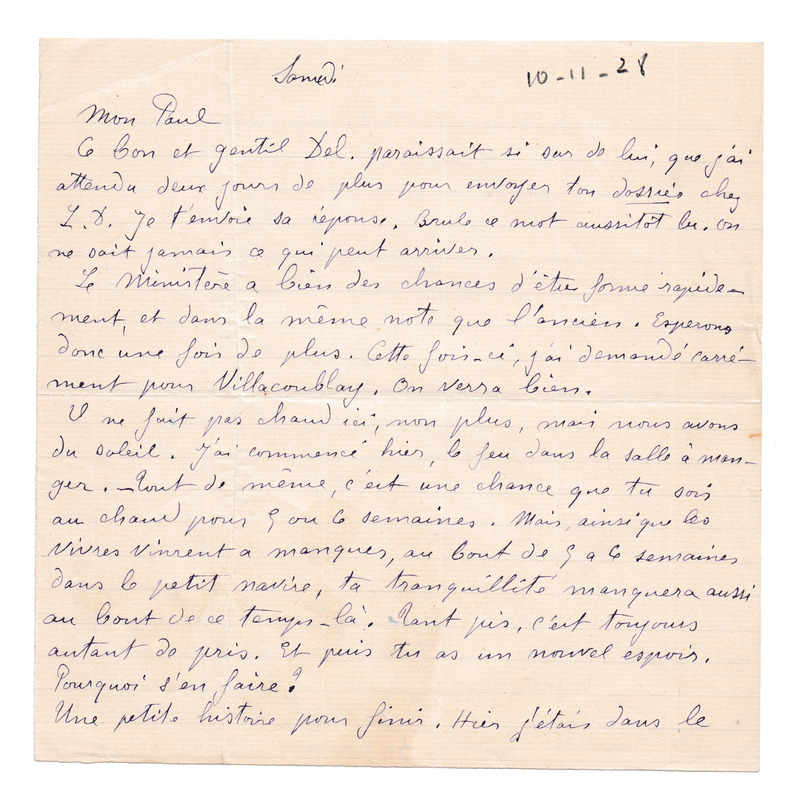 Samedi 10-11-28
Mon Paul
Ce bon et gentil Del. paraissait si sur de lui, que j'ai
attendu deux jours de plus pour envoyer ton dossier chez
L.D. Je t'envoie sa réponse. Brule ce mot aussitôt lu. On
ne sait jamais ce qui peut arriver.
Le Ministère a bien des chances d'être formé rapide-
ment, et dans la même note que l'ancien. Esperons
donc une fois de plus. Cette fois-ci, j'ai demandé carré-
ment pour Villacoublay. On verra bien.
Il ne fait pas chaud ici, non plus, mais nous avons
du soleil. J'ai commencé hier, le feu dans la salle à man-
ger. - Tout de même, c'est une chance que tu sois
au chaud pour 5 ou 6 semaines. Mais, ainsi que les
vivres vinrent a manquer, au bout de 5 a 6 semaines
dans le petit navire, ta tranquillité manquera aussi
au bout de ce temps-là. Tant pis, c'est toujours
autant de pris. Et puis tu as un nouvel espoir.
Pourquoi s'en faire?
Une petite histoire pour finir. Hier j'étais dans le